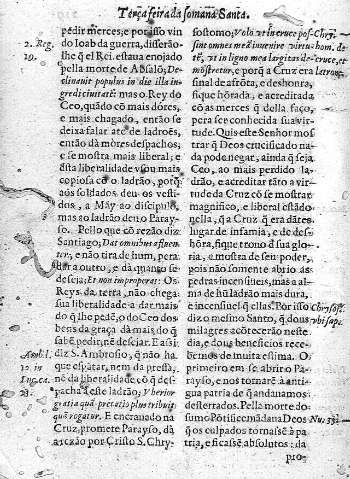 Terça feira da somana Santa.
pedir merces; e por isso vin
do Ioab da guerra, disserão-
lhe q̃ el Rei estaua enojado
pella morte de Absalõ; De-
clinauit populus in die illa in-
gredi ciuitatẽ: mas o Rey do
Ceo, quãdo cõ mais dóres,
e mais chagado, então se
deixa falar atè de ladroẽs,
então dà móres despachos;
e se mostra mais liberal; e
esta liberalidade vsou mais
copiosa cõ o ladrão, porq̃
aos soldados deu os vesti-
dos, a Mãy ao discipulo,
mas ao ladrão deu o Paray-
so. Pello que cõ rezão diz
Santiago; Dat omnibus afluen-
ter, e não tira de hum, pera
dar a outro, e dà quanto se
deseja; Et non improperat: Os
Reys da terra, não chega
sua liberalidade a dar mais
do q̃ lhe pedẽ, o do Ceo dos
bens da graça dà mais do q̃
sabẽ pedir, nẽ desejar. E assi
diz S. Ambrosio, q̃ não ha
que espãtar, nem da pressa,
nẽ da liberalidade cõ q̃ des-
pacha a este ladrão; Vberior
gratia quã precatio plus tribuit
quã rogatur. E encrauado na
Cruz, promete Parayso, dà
a rezão por Cristo S. Chry-
2. Reg.
19.
Ambr. l.
10. in
Luc. ca.
23.
sostomo; Volõ vt in cruce pos-
sint omnes me inuenire virtu hom.
te, vt in ligno mea largitas
mostretur, e porq̃ a Cruz era
final de afrõta, e deshonra,
fique hõrada, e acreditada
cõ as merces q̃ della faço,
pera ser conhecida sua vir-
tude. Quis este Senhor mos-
trar q̃ Deos crucificado na-
da pode negar, ainda q̃ seja
Ceo, ao mais perdido la-
drão, e acreditar tãto a vir-
tude da Cruz cõ se mostrar
magnifico, e liberal estãdo
nella, q̃ a Cruz q̃ era dãtes
lugar de infamia, e de des-
hõra, fique trono d̃ sua glo-
ria, e mostra de seu poder,
pois não somente abrio as
pedras incensiueis, mas a al-
ma de hũ ladrão mais dura,
e incensiuel q̃ ellas. Por isso
dizo mesmo Santo, q̃ dous
milagres acontecerão neste
dia, e dous beneficios rece-
bemos de muita estima. O
primeiro em se abrir o Pa-
rayso, e nos tornarẽ á anti-
gua patria de q̃ andauamos
desterrados. Pella morte do
sumo Põtifice mãdaua Deos
q̃ os culpados tornasẽ à pa-
tria, e ficassẽ absolutos: da
pro-
Chry-
Chrysost.
vbi sup.
Nu. 35.